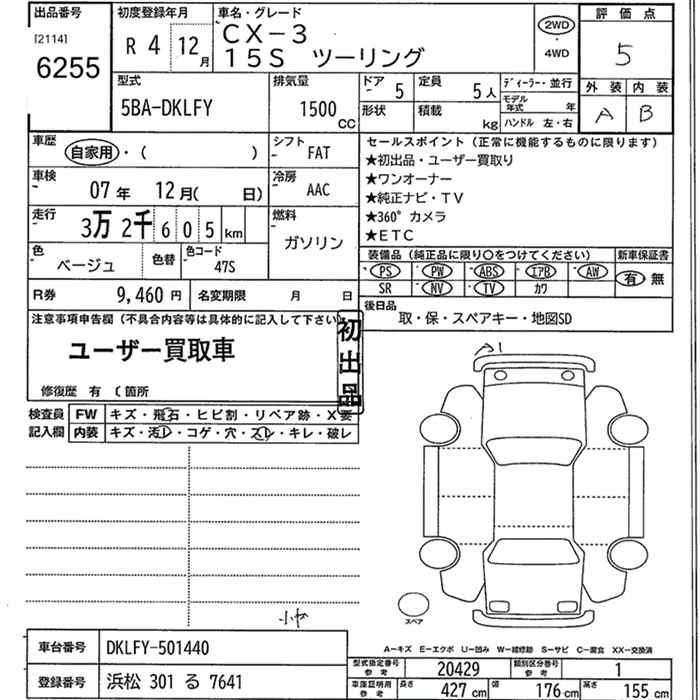 出品番号 初度登録年月 車名・グレード 評価点
[2114] R 4 12月 CX-3 2WD
6255 15S ツーリング ・4WD 5
型式 排気量 ドア 5 定員 5人 ディーラー・並行 外装 内装
5BA-DKLFY 1500cc 形状 積載 kg モデル年式 年 A B
ハンドル 左・右
車歴 自家用・( ) シフト FAT セールスポイント(正常に機能するものに限ります)
★初出品・ユーザー買取り
車検 07年 12月( 日) 冷房 AAC ★ワンオーナー
★純正ナビ・TV
走行 3万2千605km 燃料 ガソリン ★360°カメラ
★ETC
色 ベージュ 色替 色コード 47S 装備品(純正品に限り○をつけてください) 新車保証書
PS PW ABS エアB AW 有・無
SR NV TV カワ
R券 9,460円 名変期限 月 日 後日品
取・保・スペアキー・地図SD
注意事項申告欄(不具合内容等は具体的に記入して下さい)
ユーザー買取車
初出品
修復歴 有 〔箇所
検査員記入欄 FW キズ・飛石・ヒビ割・リペア跡・X要
内装 キズ・汚レ・コゲ・穴・スレ・キレ・破レ
A1
スペア
A=キズ E=エクボ U=凹み W=補修跡 S=サビ C=腐食 XX=交換済
車台番号 DKLFY-501440 型式指定番号参考 20429 類別区分番号参考 1
登録番号 浜松 301 る 7641 車庫証明用参考 長さ 427cm 幅 176cm 高さ 155cm